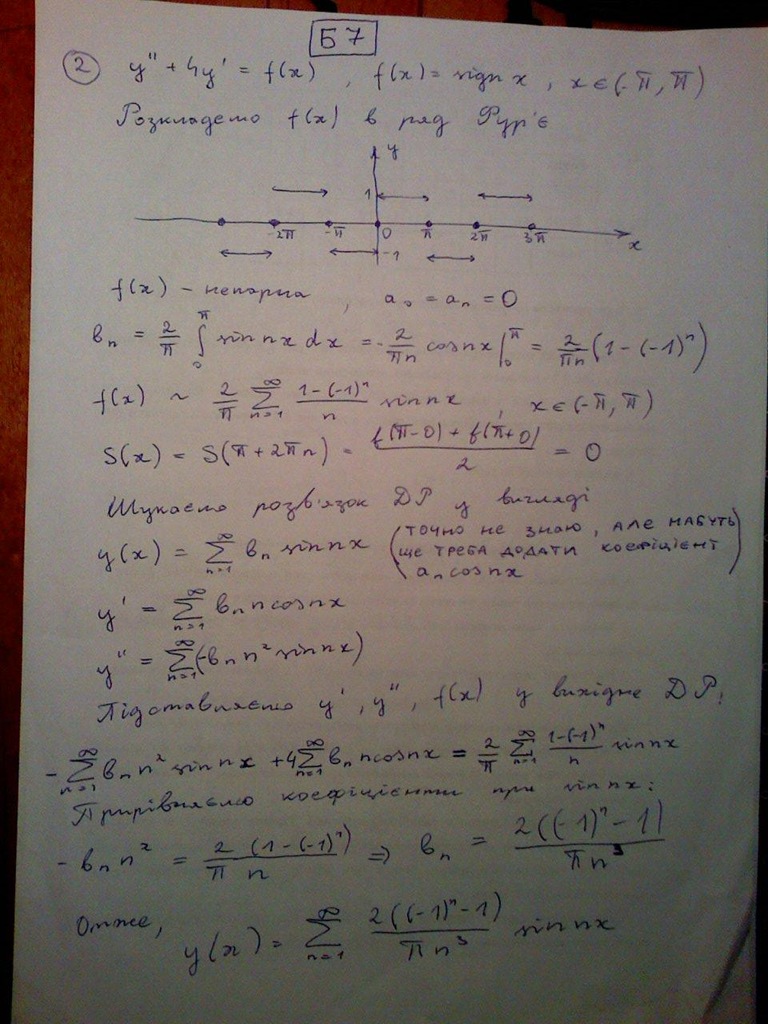 Б 7
② y'' + 4y' = f(x) , f(x) = sign x , x ∈ (-π, π)
Розкладемо f(x) в ряд Фур'є
y
1
-2π -π 0 π 2π 3π x
-1
f(x) - непарна , a₀ = aₙ = 0
bₙ = 2/π ∫₀^π sin nx dx = -2/(πn) cos nx |₀^π = 2/(πn) (1 - (-1)ⁿ)
f(x) ~ 2/π ∑_{n=1}^∞ (1-(-1)ⁿ)/n sin nx , x ∈ (-π, π)
S(x) = S(π + 2πn) = (f(π-0) + f(π+0))/2 = 0
Шукаємо розв'язок ДР у вигляді
y(x) = ∑_{n=1}^∞ bₙ sin nx (точно не знаю, але мабуть
ще треба додати коефіцієнт
aₙ cos nx)
y' = ∑_{n=1}^∞ bₙ n cos nx
y'' = ∑_{n=1}^∞ (-bₙ n² sin nx)
Підставляємо y', y'', f(x) у вихідне ДР:
-∑_{n=1}^∞ bₙ n² sin nx + 4∑_{n=1}^∞ bₙ n cos nx = 2/π ∑_{n=1}^∞ (1-(-1)ⁿ)/n sin nx
Прирівняємо коефіцієнти при sin nx:
-bₙ n² = 2/π (1-(-1)ⁿ)/n ⇒ bₙ = 2((-1)ⁿ-1)/(πn³)
Отже,
y(x) = ∑_{n=1}^∞ 2((-1)ⁿ-1)/(πn³) sin nx